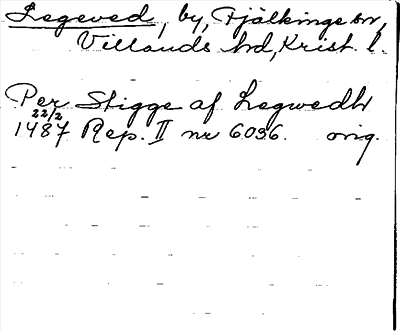 Legeved, by, Fjälkinge sn,
Villands hd, Krist. l.
Per Stigge af Legwedh
22/2
1487 Rep. II nr 6036. orig.